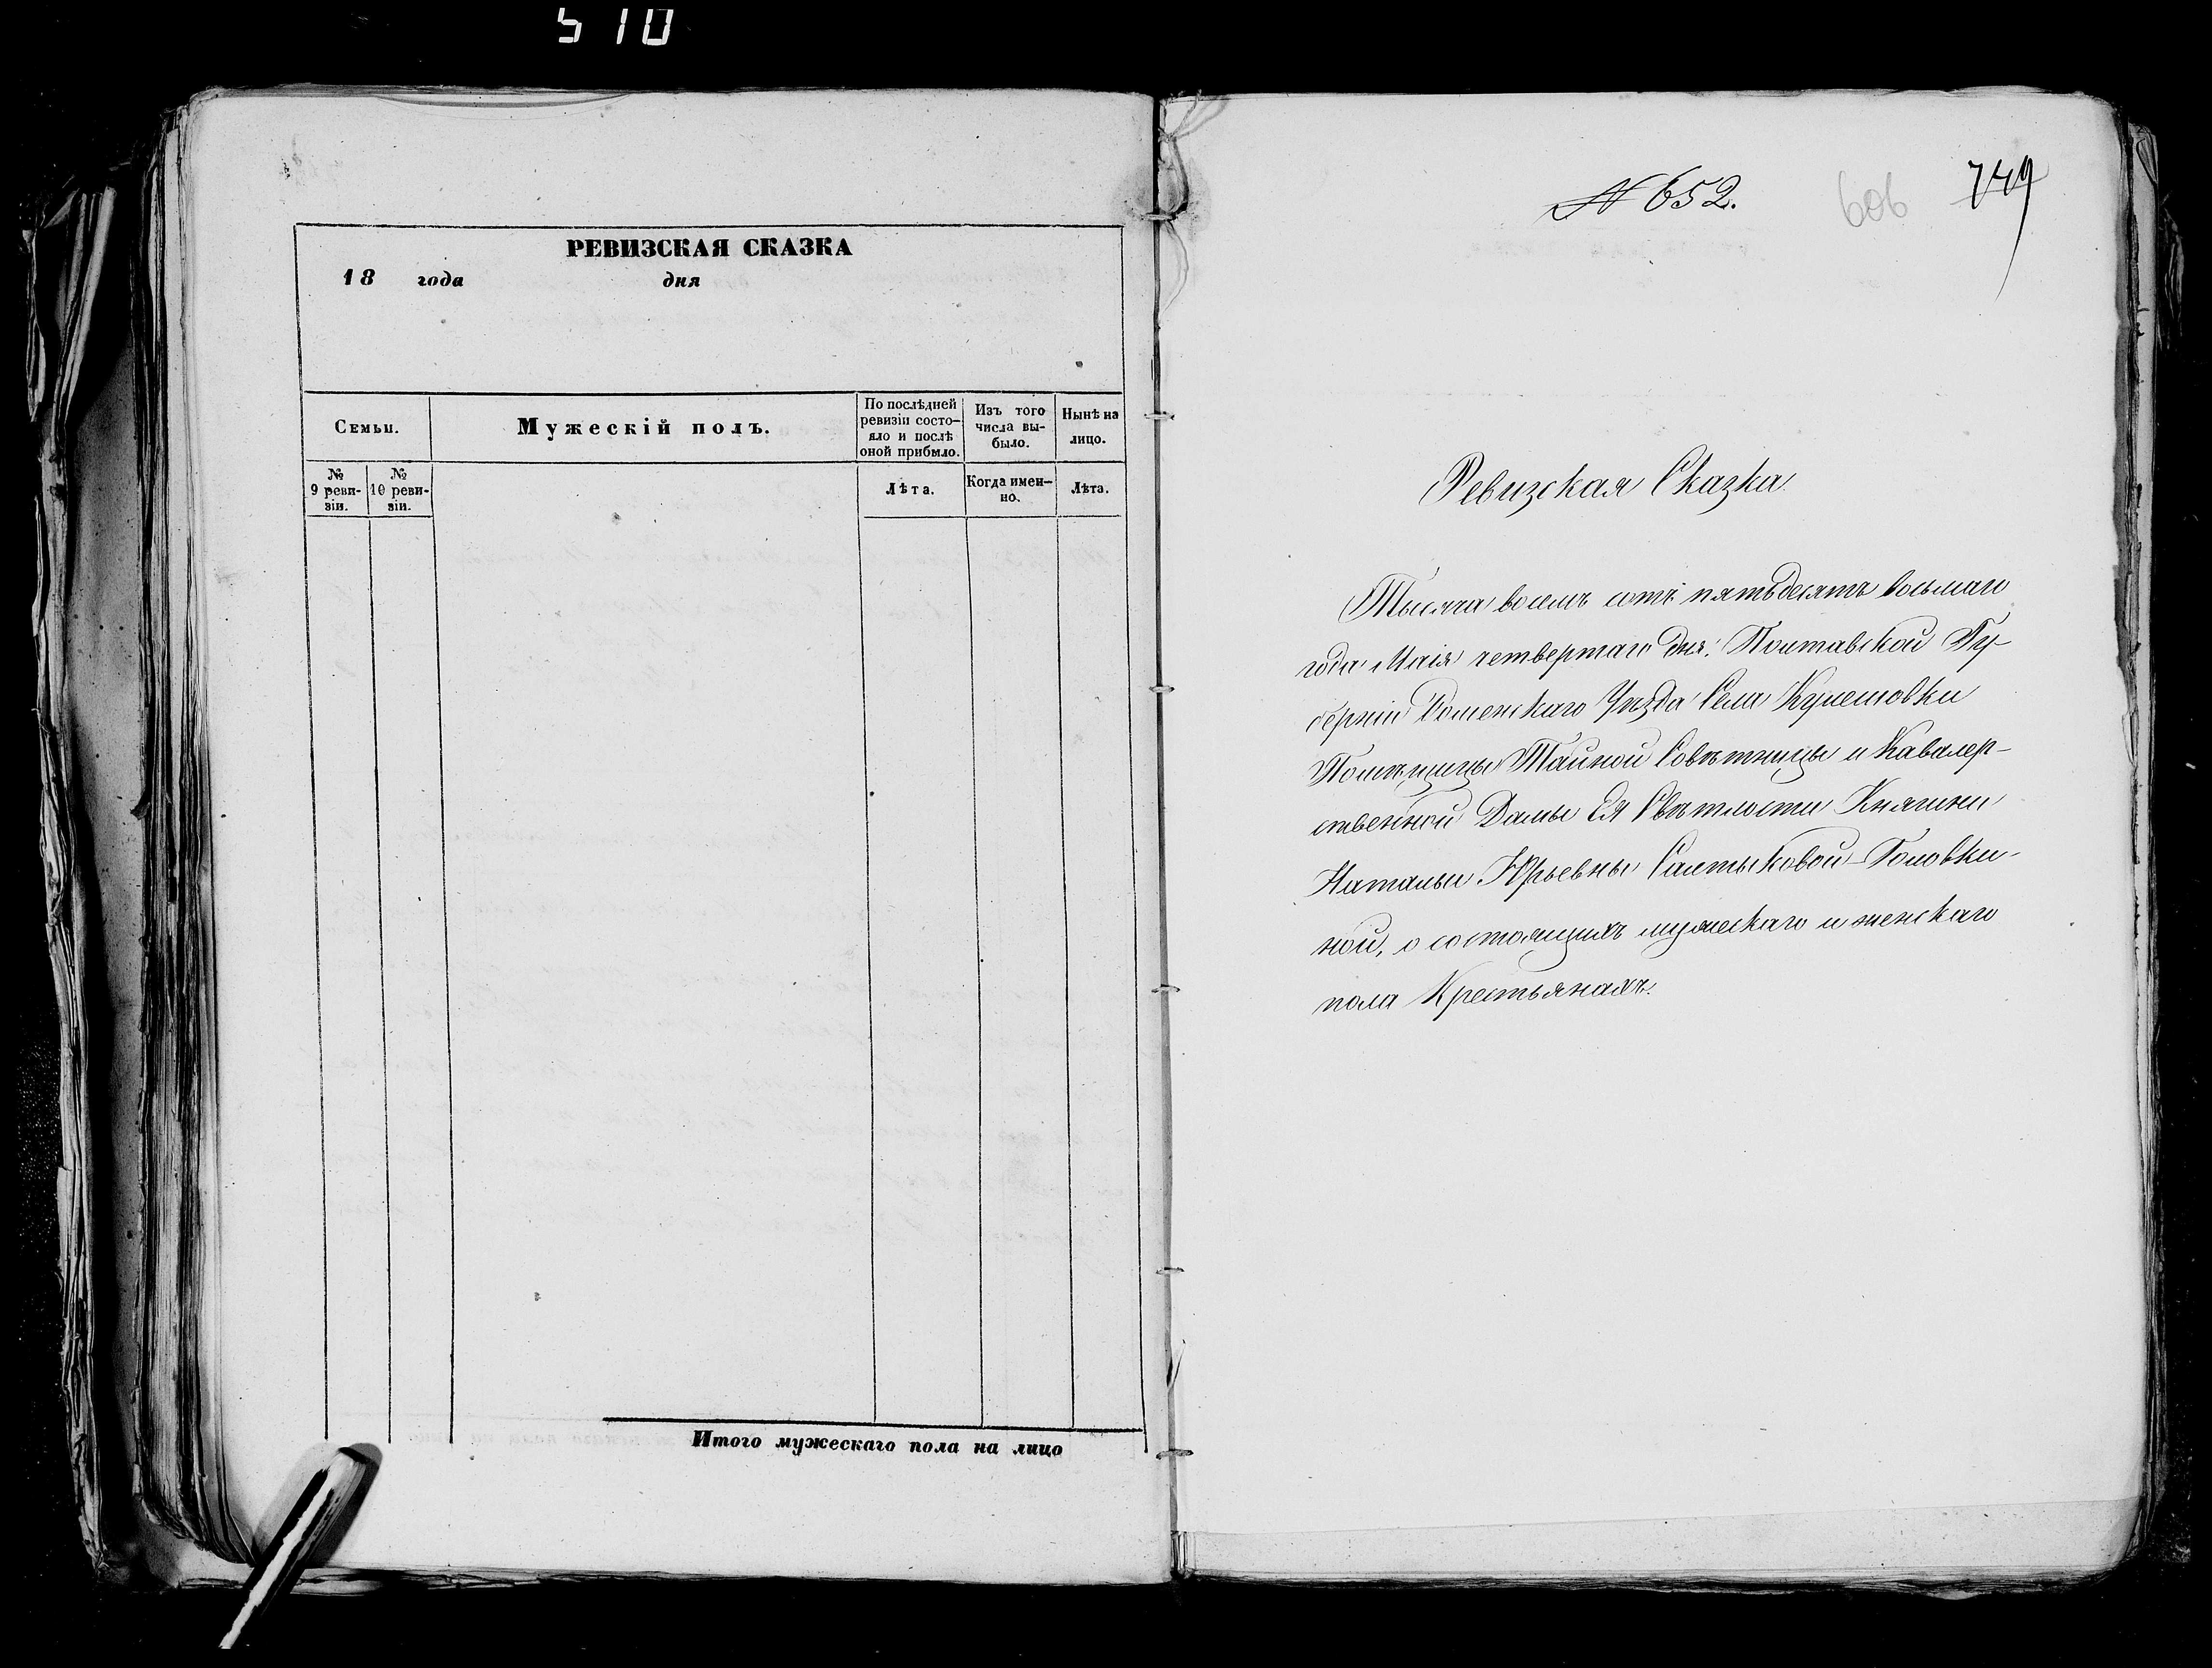 510
РЕВИЗСКАЯ СКАЗКА
18 года дня
Семьи.
Мужескій полъ.
По послѣдней
ревизіи состо-
яло и послѣ
оной прибыло.
Изъ того
числа вы-
было.
Нынѣ на
лицо.
№
9 реви-
зіи.
№
10 реви-
зіи.
Лѣта.
Когда имен-
но.
Лѣта.
Итого мужескаго пола на лицо
№ 652.
606
749
Ревизская Сказка
Тысяча восемъ сотъ пятьдесятъ восьмаго
года Маія четвертаго дня. Полтавской Гу-
берніи Роменскаго Уѣзда Села Кулешовки
Помѣщицы Тайной Совѣтницы и Кавалер-
ственной Дамы Ея Свѣтлости Княгини
Натальи Юрьевны Салтыковой-Головки-
ной, о состоящихъ мужескаго и женскаго
пола Крестьянахъ.